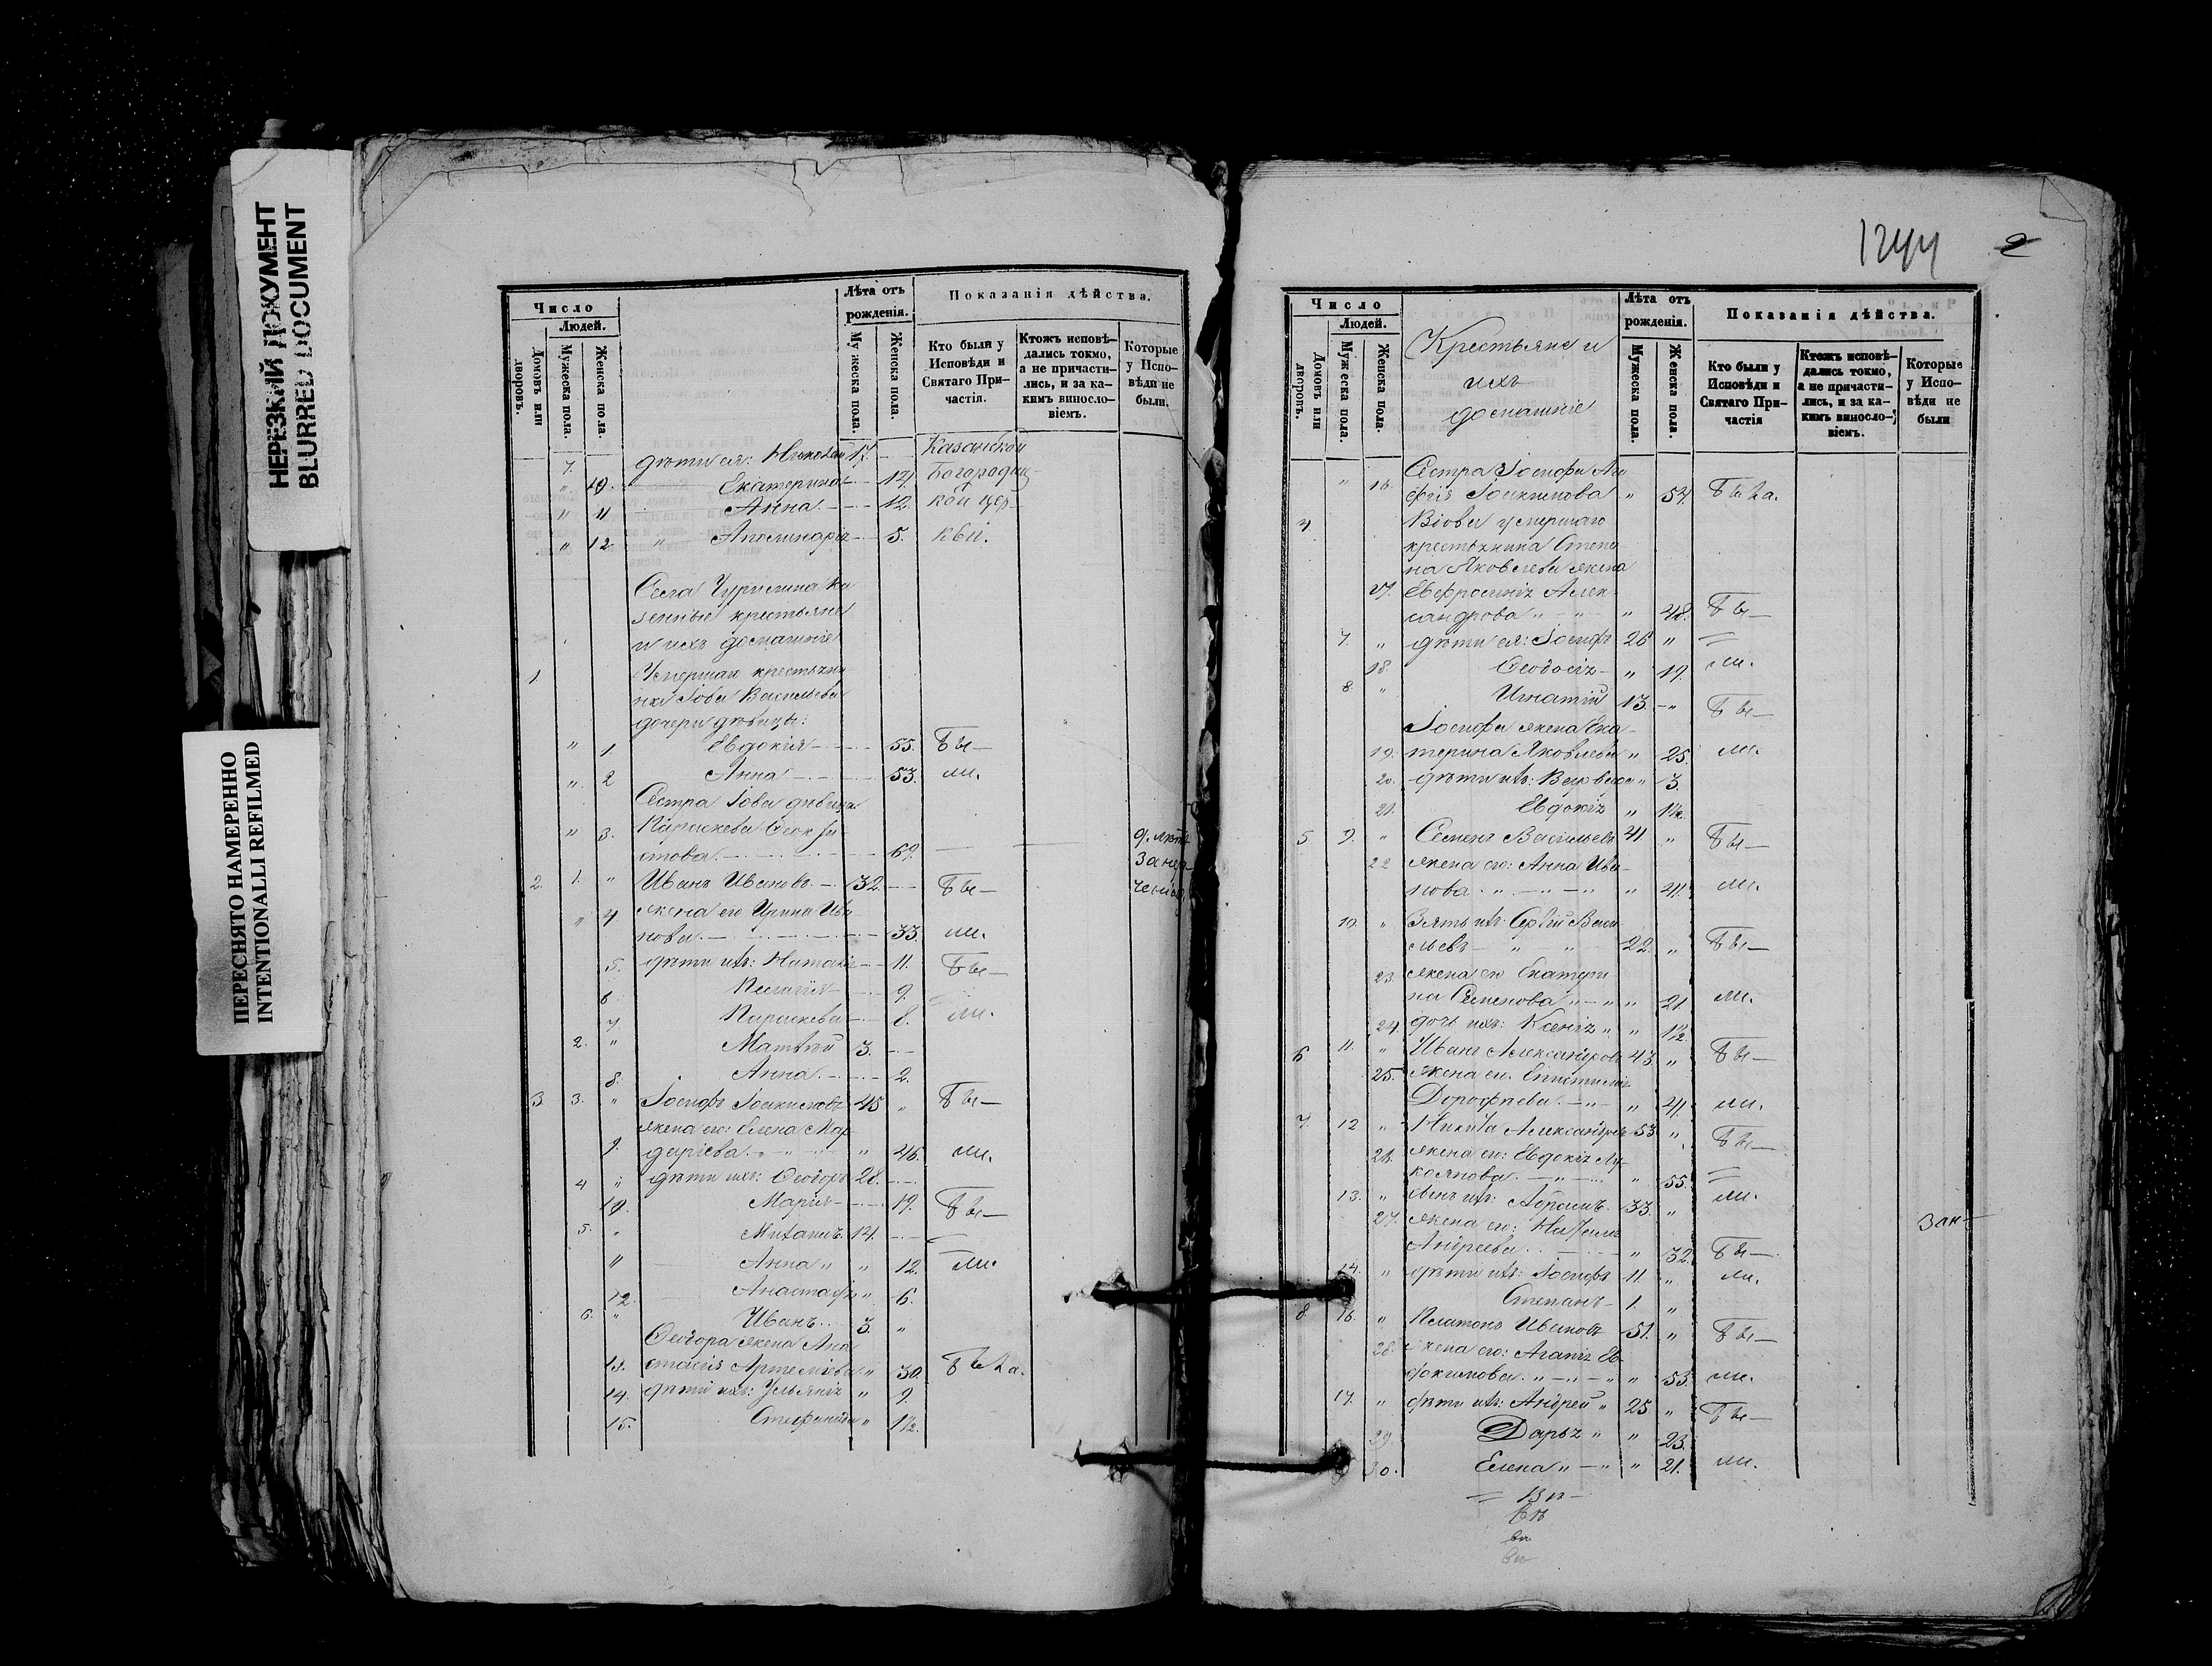 НЕРЕЗКИЙ ДОКУМЕНТ
BLURRED DOCUMENT
ПЕРЕСНЯТО НАМЕРЕННО
INTENTIONALLI REFILMED
Число
Людей.
Домовъ или дворовъ.
Мужеска пола.
Женска пола.
Лѣта отъ рожденія.
Мужеска пола.
Женска пола.
Показанія дѣйства.
Кто были у Исповѣди и Святаго Причастія.
Ктожъ исповѣдались токмо, а не причастились, и за какимъ винословіемъ.
Которые у Исповѣди не были.
7. дѣти ея: Николай 17. Казанской
" 10. Екатерина 14 Богородиц-
" 11 Анна 12. кой цер-
" 12. " Аполинарія 5. кви.
Села Чурилина ка
зенные крестьяне
и ихъ домашніе
1 Умершаго крестьяни
нка Іова Васильева
дочери дѣвицы:
" 1. Евдокія 55. Бы-
" 2 Анна 53. ли.
Сестра Іова дѣвица
" 3. Параскева Феок
стова. 69.
2. 1. " Иванъ Ивановъ. 32. Бы-
" 4 жена его Ирина Ива
нова. 33. ли.
5. дѣти ихъ: Наталія 11. Бы-
6 Пелагія 9.
7. Параскева 8. ли.
2. " Матвѣй 3.
8. Анна. 2.
3 3. " Іосифъ Іоакимовъ 45 " Бы-
жена его: Елена Мар
9. даріева. " " 46. ли.
4 " дѣти ихъ: Феодоръ 28.
10. Марія 19. Бы-
5. " Михаилъ 14.
11 Анна " " 12. ли.
12 Анастасія " 6.
6. " Иванъ. 3. "
Феодора жена Ана
13. стасія Артеміева " 30. Была.
14. дѣти ихъ: Ульянія " 9.
15. Стефанида " 1½.
1244 2
Число
Людей.
Домовъ или дворовъ.
Мужеска пола.
Женска пола.
Крестьяне и
ихъ
домашніе
Лѣта отъ рожденія.
Мужеска пола.
Женска пола.
Показанія дѣйства.
Кто были у Исповѣди и Святаго Причастія
Ктожъ исповѣдались токмо, а не причастились, и за какимъ винословіемъ.
Которые у Исповѣди не были
Сестра Іосифа Ага
" 16. фія Іоакимова " 54 Была.
4 Вдова умершаго
крестьянина Степа
на Яковлева жена
17. Евфросинія Алек
сандрова " " 48. Бы-
7. " дѣти ея: Іосифъ 26 "
18. Феодосія " 19. ли.
8. " Игнатій 13. " Бы-
Іосифа жена Ека-
19. терина Яковлева " 25. ли.
20. дѣти ихъ: Варвара " 3.
21. Евдокія " 1½.
5 9. " Семенъ Васильевъ 41 " Бы-
22 жена его: Анна Ива-
нова. " " 41. ли.
10. " Зять ихъ: Сергій Васи
льевъ " " 22. " Бы-
23. жена его Екатери
на Семенова " " 21 ли.
24. дочь ихъ: Ксенія " " 1½
6 11. " Иванъ Александровъ 43 " Бы-
25. жена ег. Епистимія
Дорофѣева. " " 41. ли.
7. 12 " Никита Александровъ 53 " Бы-
26. жена его: Евдокія Лу-
коянова. " 55.
13. " сынъ ихъ: Абрамъ. 33. " ли.
27. жена его:
Андреева. " 32. Бы-
14. " дѣти ихъ: Іосифъ 11. " ли.
Степанъ 1. "
8 16. " Платонъ Ивановъ 51. " Бы-
28. жена его: Агапія Ев-
докимова. " " " 53. ли.
17. " дѣти ихъ: Андрей " 25 " Бы-
29. Дарья " " 23.
30. Елена " " " 21. ли.